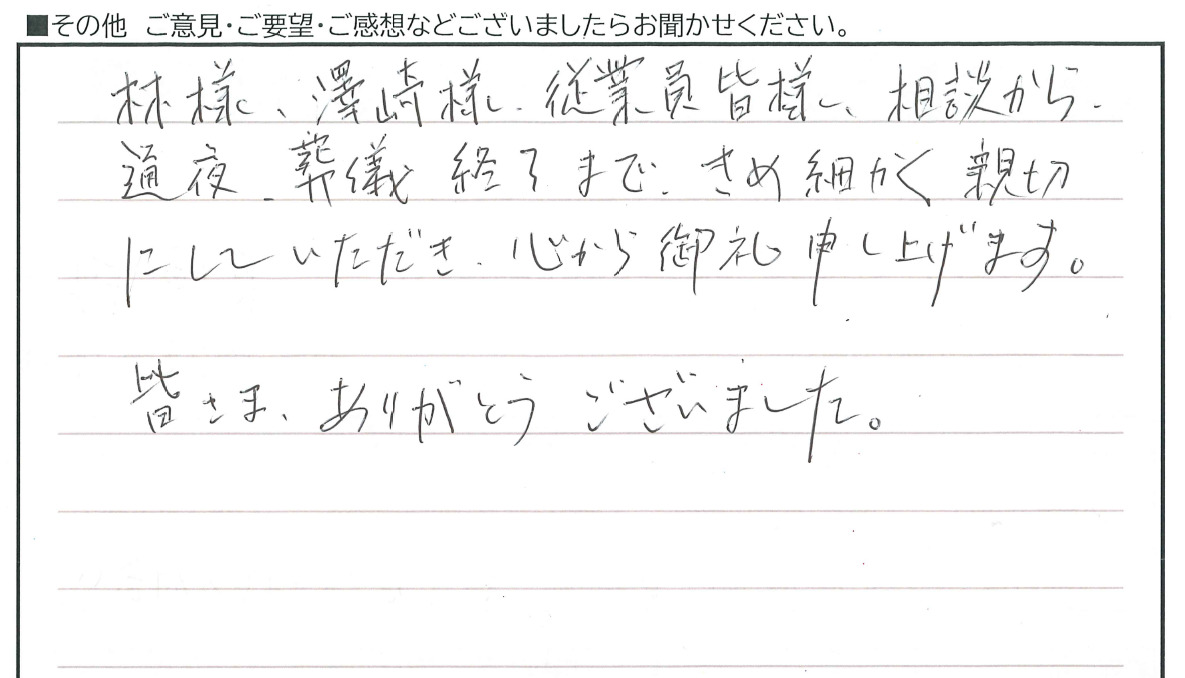 ■その他 ご意見・ご要望・ご感想などございましたらお聞かせください。
林様、澤崎様、従業員皆様、相談から、
通夜、葬儀終了まで、きめ細かく親切
にしていただき、心から御礼申し上げます。
皆さま、ありがとうございました。